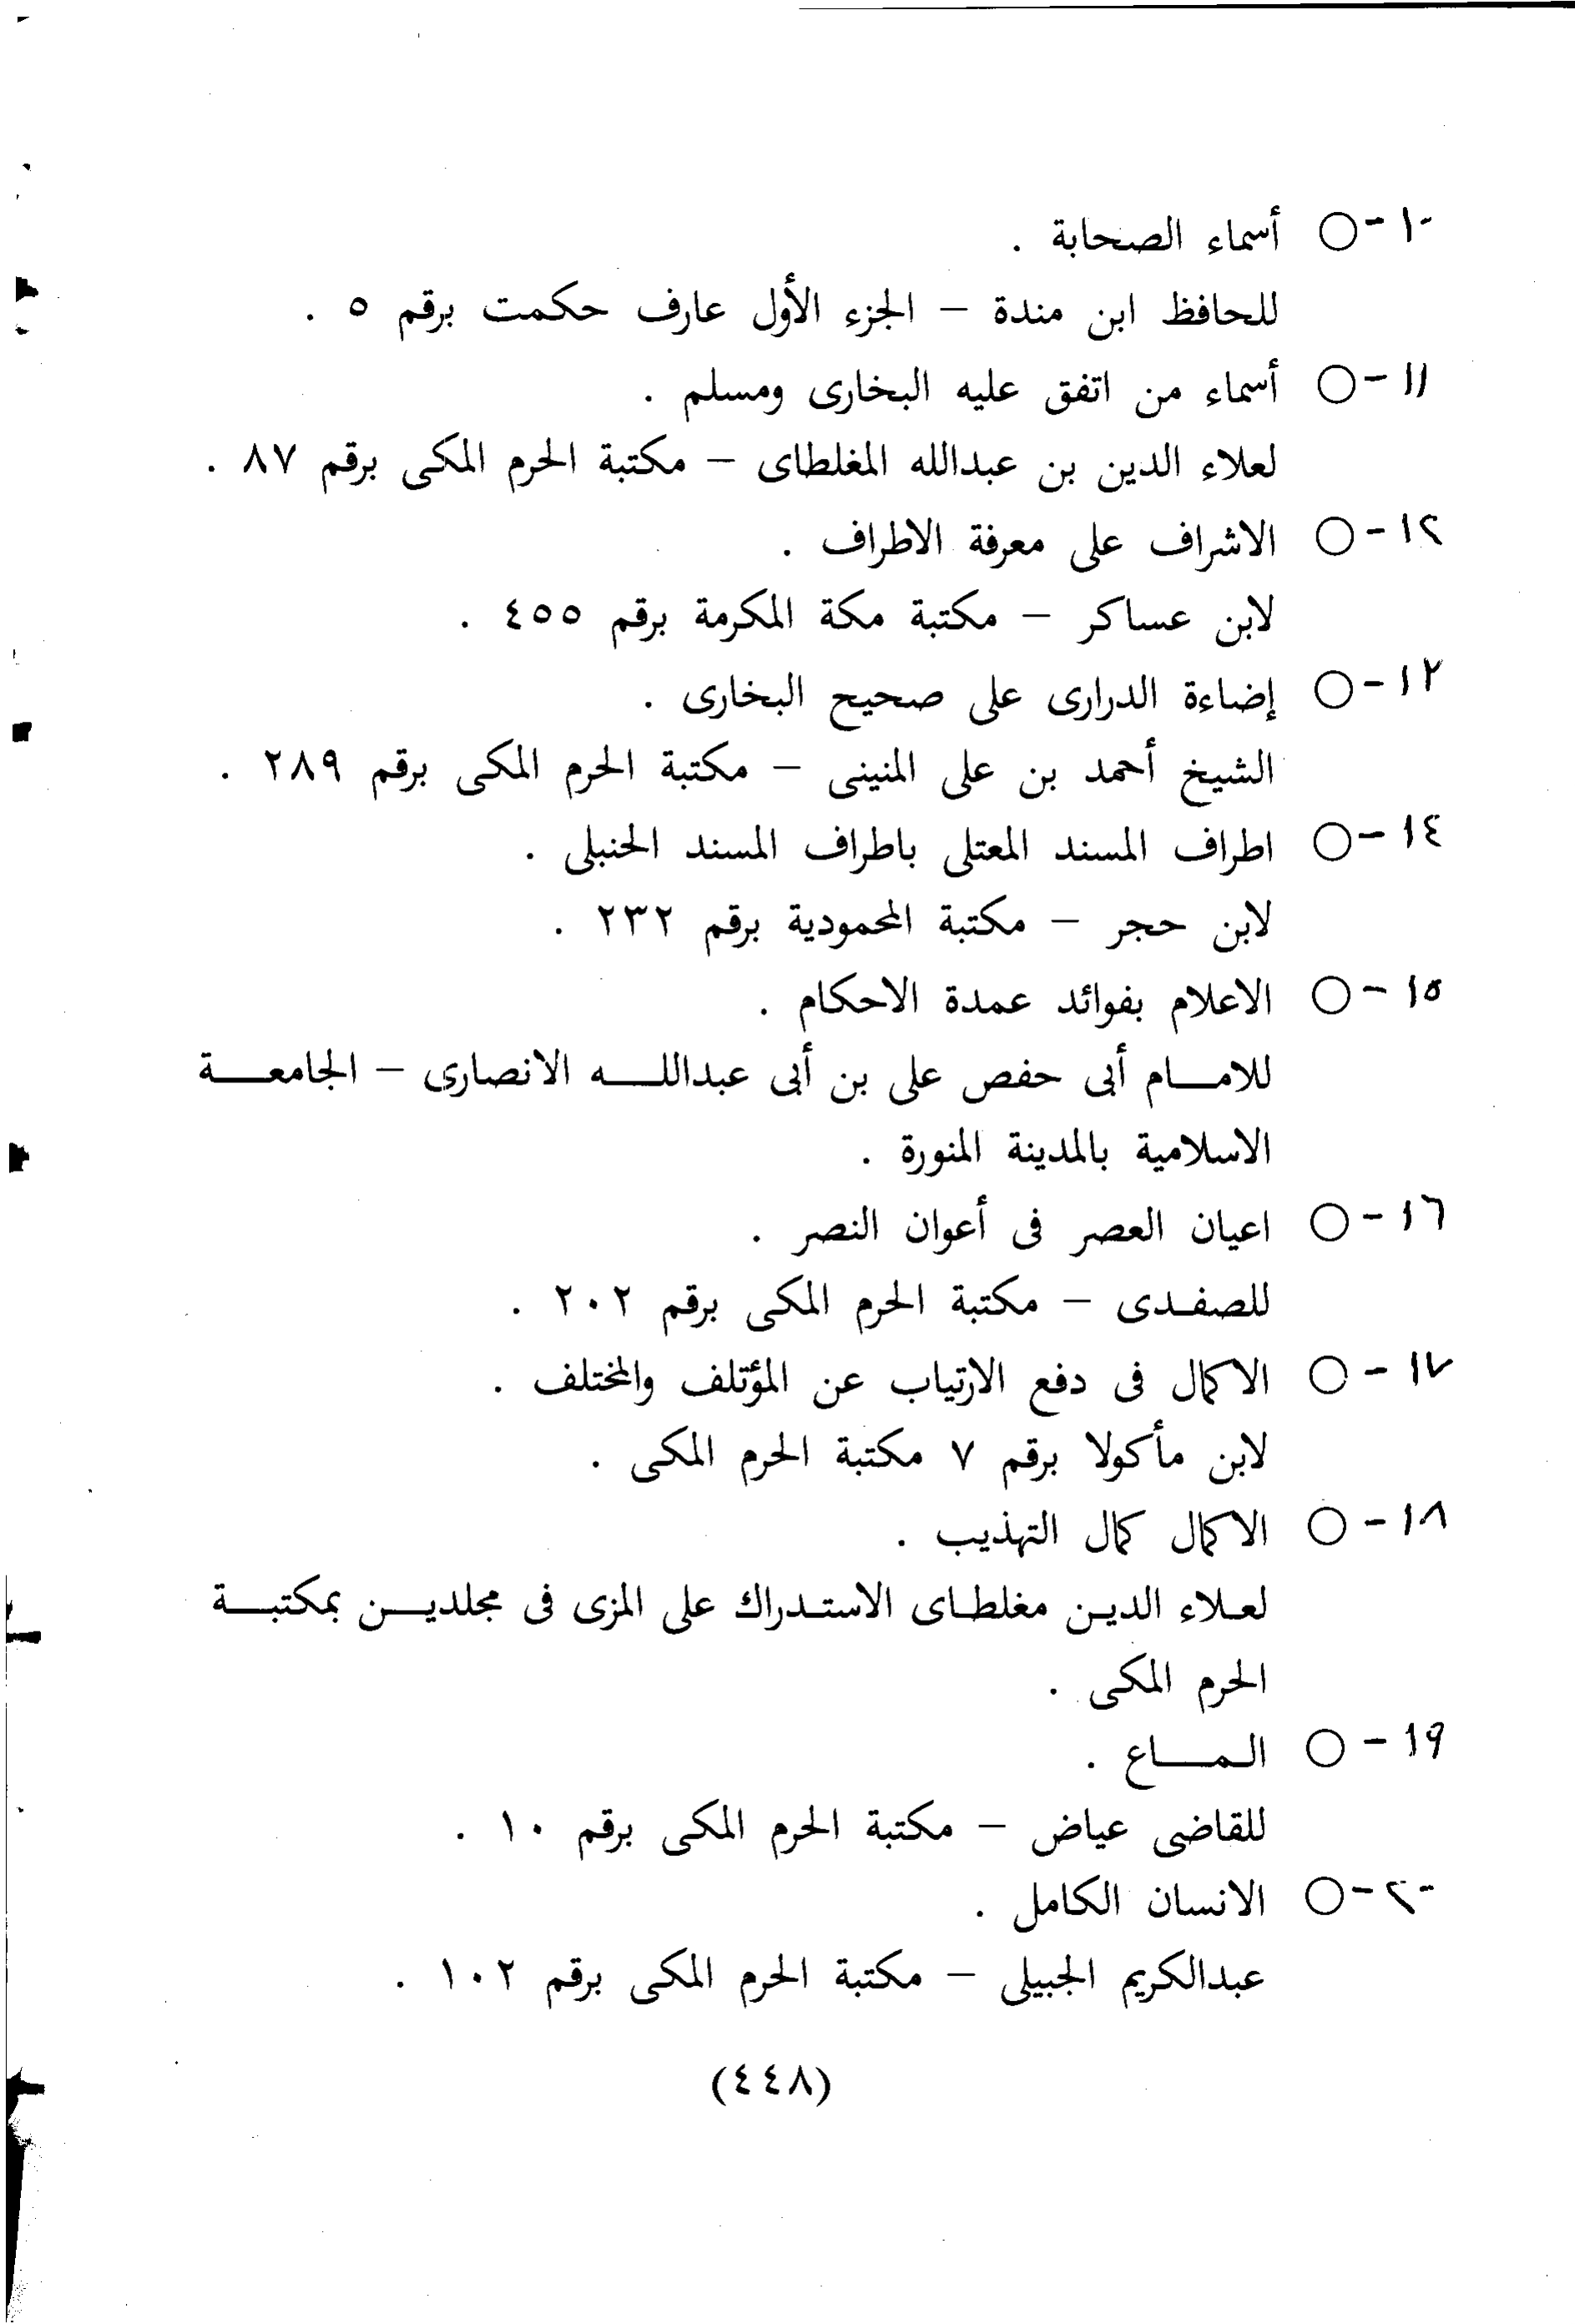 ١٠ - ○ أسماء الصحابة .
للحافظ ابن مندة – الجزء الأول عارف حكمت برقم ٥ .
١١ - ○ أسماء من اتفق عليه البخارى ومسلم .
لعلاء الدين بن عبدالله المغلطاى – مكتبة الحرم المكى برقم ٨٧ .
١٢ - ○ الاشراف على معرفة الاطراف .
لابن عساكر – مكتبة مكة المكرمة برقم ٤٥٥ .
١٣ - ○ إضاءة الدرارى على صحيح البخارى .
الشيخ أحمد بن على المنينى – مكتبة الحرم المكى برقم ٢٨٩ .
١٤ - ○ اطراف المسند المعتلى باطراف المسند الحنبلى .
لابن حجر – مكتبة المحمودية برقم ٢٣٢ .
١٥ - ○ الاعلام بفوائد عمدة الاحكام .
للامام أبى حفص على بن أبى عبدالله الانصارى – الجامعة
الاسلامية بالمدينة المنورة .
١٦ - ○ اعيان العصر فى أعوان النصر .
للصفدى – مكتبة الحرم المكى برقم ٢٠٢ .
١٧ - ○ الاكمال فى دفع الارتياب عن المؤتلف والمختلف .
لابن مأكولا برقم ٧ مكتبة الحرم المكى .
١٨ - ○ الاكمال كمال التهذيب .
لعلاء الدين مغلطاى الاستدراك على المزى فى مجلدين بمكتبة
الحرم المكى .
١٩ - ○ الماع .
للقاضى عياض – مكتبة الحرم المكى برقم ١٠ .
٢٠ - ○ الانسان الكامل .
عبدالكريم الجبيلى – مكتبة الحرم المكى برقم ١٠٢ .
(٤٤٨)